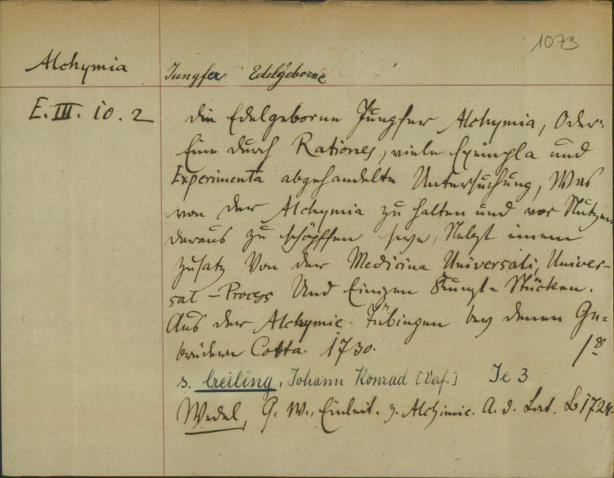 1073
Alchymia Jungfer Edelgeborne
E. III. 10. 2 Die Edelgeborne Jungfer Alchymia, Oder:
Eine durch Rationes, viele Exempla und
Experimenta abgehandelte Untersuchung, Was
von der Alchymia zu halten und vor Nutzen
daraus zu schöpffen seye, Nebst einem
Zusatz Von der Medicina Universali, Univer-
sal-Process Und Einigen Kunst-Stücken.
Aus der Alchymie. Tübingen bey denen Ge-
brüdern Cotta. 1730. 8°
s. Creiling, Johann Konrad [Verf.] Je 3
Wedel, G. W., Einleit. z. Alchimie. A. d. Lat. B 1724.